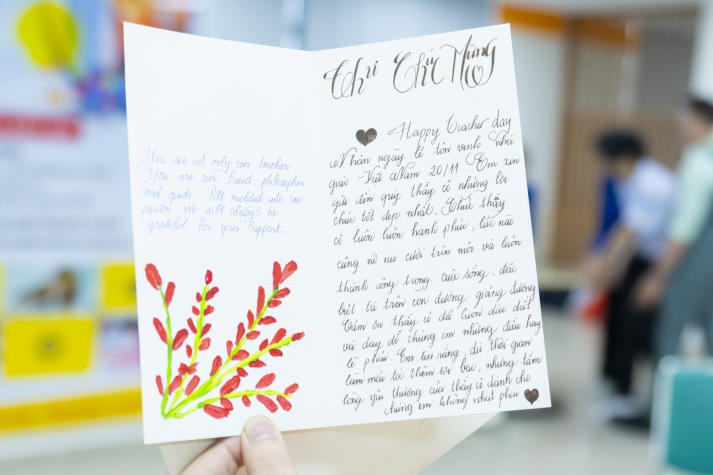 You are not only our teacher
You are our friend, philosopher
and guide. All molded into one
person we will always be
grateful for your support.
Thư Chúc Mừng
Happy Teacher day
Nhân ngày lễ tôn vinh nhà
giáo Việt Nam 20/11 Em xin
gửi đến quý thầy cô những lời
chúc tốt đẹp nhất. Chúc thầy
cô luôn luôn hạnh phúc, lúc nào
cũng nở nụ cười trên môi và luôn
thành công trong cuộc sống, đặc
biệt là trên con đường giảng đường
Cảm ơn thầy cô đã luôn dìu dắt
và dạy dỗ chúng em những điều hay
lẽ phải. Em tin rằng, dù thời gian
làm mái tóc thêm bạc, những tấm
lòng yêu thương của thầy cô dành cho
chúng em không nhạt phai